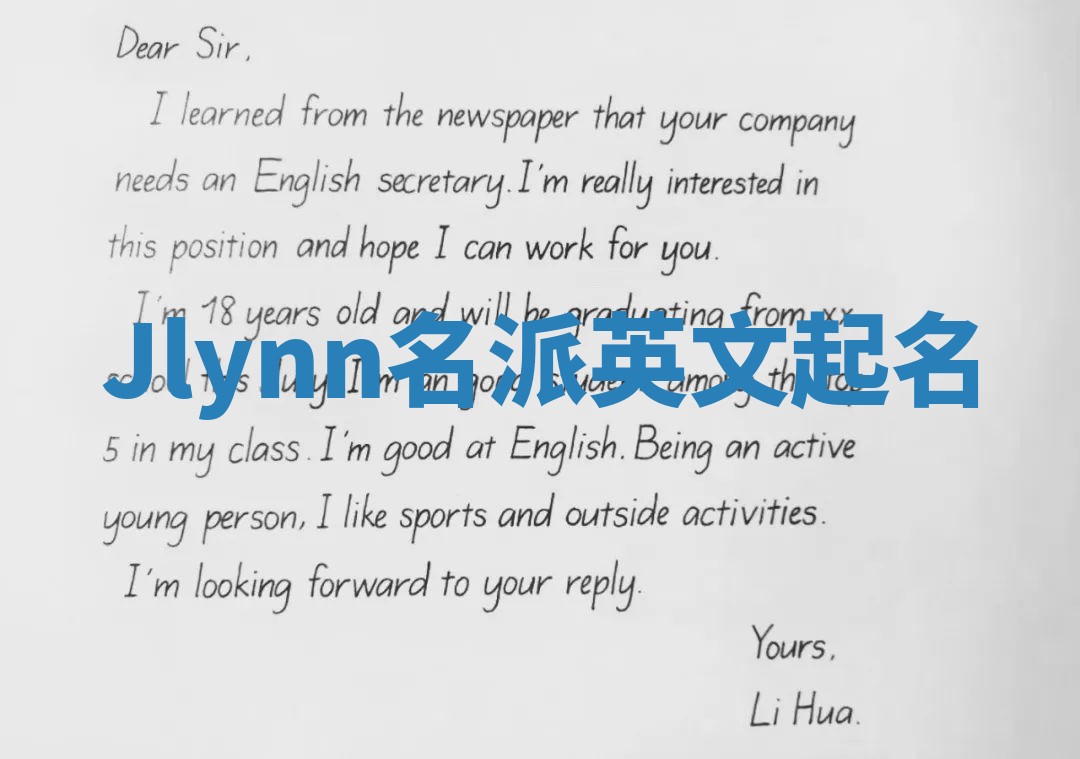 Dear Sir,
I learned from the newspaper that your company
needs an English secretary. I'm really interested in
this position and hope I can work for you.
I'm 18 years old and will be graduating from xx
Jlynn名派英文起名
school this July. I'm an good student among the top
5 in my class. I'm good at English. Being an active
young person, I like sports and outside activities.
I'm looking forward to your reply.
Yours,
Li Hua.